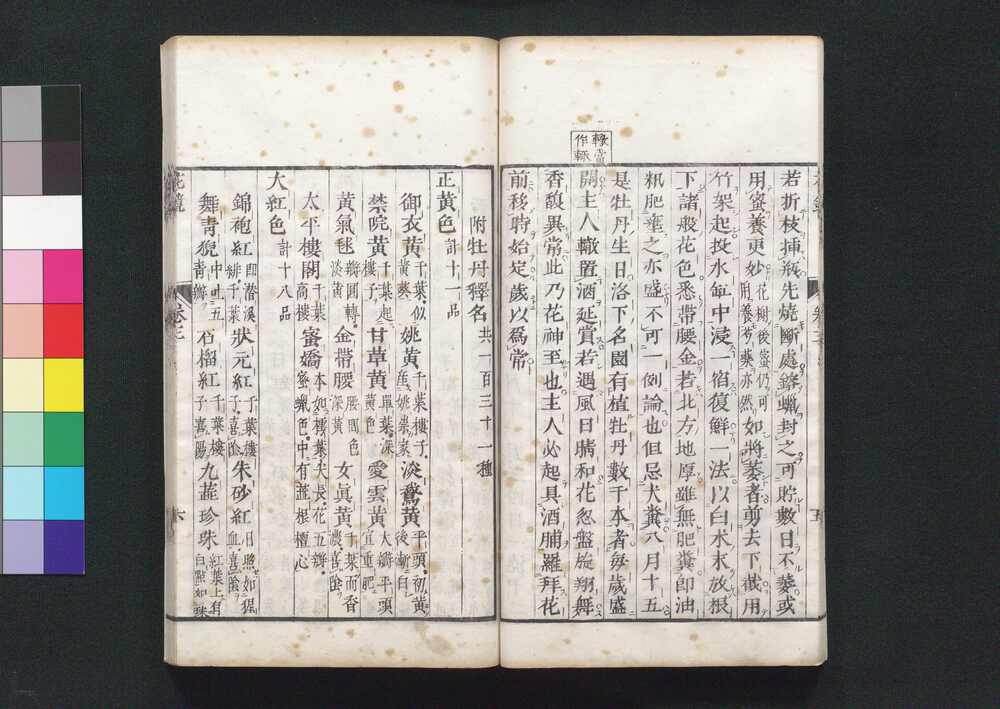 若折枝挿瓶先燒斷處鎔蠟封之可貯數日不萎或
用蜜養更妙花謝後蜜仍可用養芍藥亦然如將萎者剪去下截用
竹架起投水缸中浸一宿復鮮一法以白朮末放根
下諸般花色悉帶腰金若北方地厚雖無肥糞卽油
籸肥壅之亦盛不可一例論也但忌犬糞八月十五
是牡丹生日洛下名園有植牡丹數千本者每歲盛
開主人轍置酒延賞若遇風日晴和花忽盤旋翔舞
香馥異常此乃花神至也主人必起具酒脯羅拜花
前移時始定歲以爲常
轍當
作輙
附牡丹釋名共一百三十一種
正黃色計十一品
御衣黃千葉似黃葵 姚黃千葉樓子產姚崇家 淡鵞黃平頭初黃後漸白
禁院黃千葉起樓子 甘草黃單葉深黃色 愛雲黃大瓣平頭宜重肥
黃氣毬瓣圓轉淡黃 金帶腰腰間色深黃 女眞黃千葉而香濃喜陰
太平樓閣千葉高樓 蜜嬌本如樗葉尖長花五瓣蜜蠟色中有蕋根檀心
大紅色計十八品
錦袍紅卽潛溪緋千葉 狀元紅千葉樓子喜陰 朱砂紅日照如猩血喜陰
舞靑猊中吐五靑瓣 石榴紅千葉樓子喜陽 九蕋珍珠紅葉上有白點如珠
花鏡
卷三
六